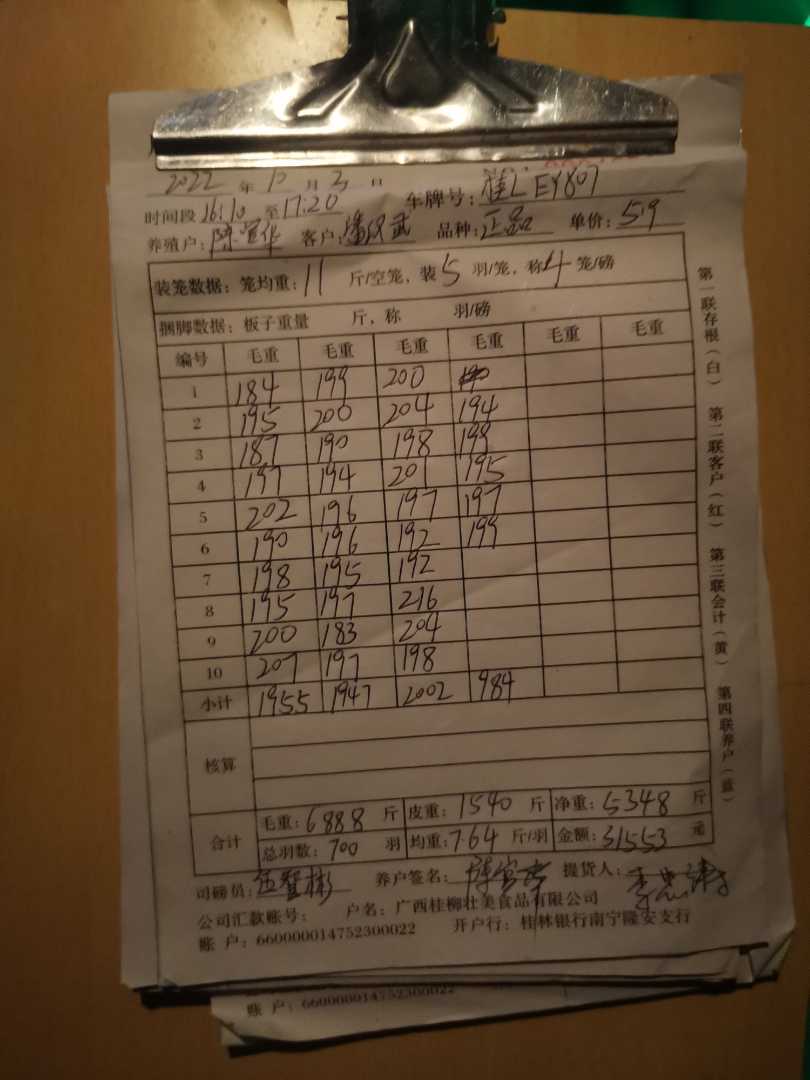 2022 年 10 月 3 日
时间段 16:10 至 17:20 车牌号: 桂L EY807
养殖户: 陈宣华 客户: 武 品种: 正品 单价: 5.9
装笼数据: 笼均重: 11 斤/空笼, 装 5 羽/笼, 称 4 笼/磅
捆脚数据: 板子重量 斤, 称 羽/磅
编号 毛重 毛重 毛重 毛重 毛重 毛重
1 184 199 200
2 195 200 204 194
3 187 190 198 199
4 197 194 201 195
5 202 196 197 197
6 190 196 192 199
7 198 195 192
8 195 197 216
9 200 183 204
10 207 197 198
小计 1955 1947 2002 984
核算
合计 毛重: 6888 斤 皮重: 1540 斤 净重: 5348 斤
总羽数: 700 羽 均重: 7.64 斤/羽 金额: 31553 元
司磅员: 养户签名: 提货人:
公司汇款账号: 户名: 广西桂柳壮美食品有限公司
账 户: 660000014752300022 开户行: 桂林银行南宁隆安支行
账 户: 660000014752300022
第一联存根(白) 第二联客户(红) 第三联会计(黄) 第四联养户(蓝)